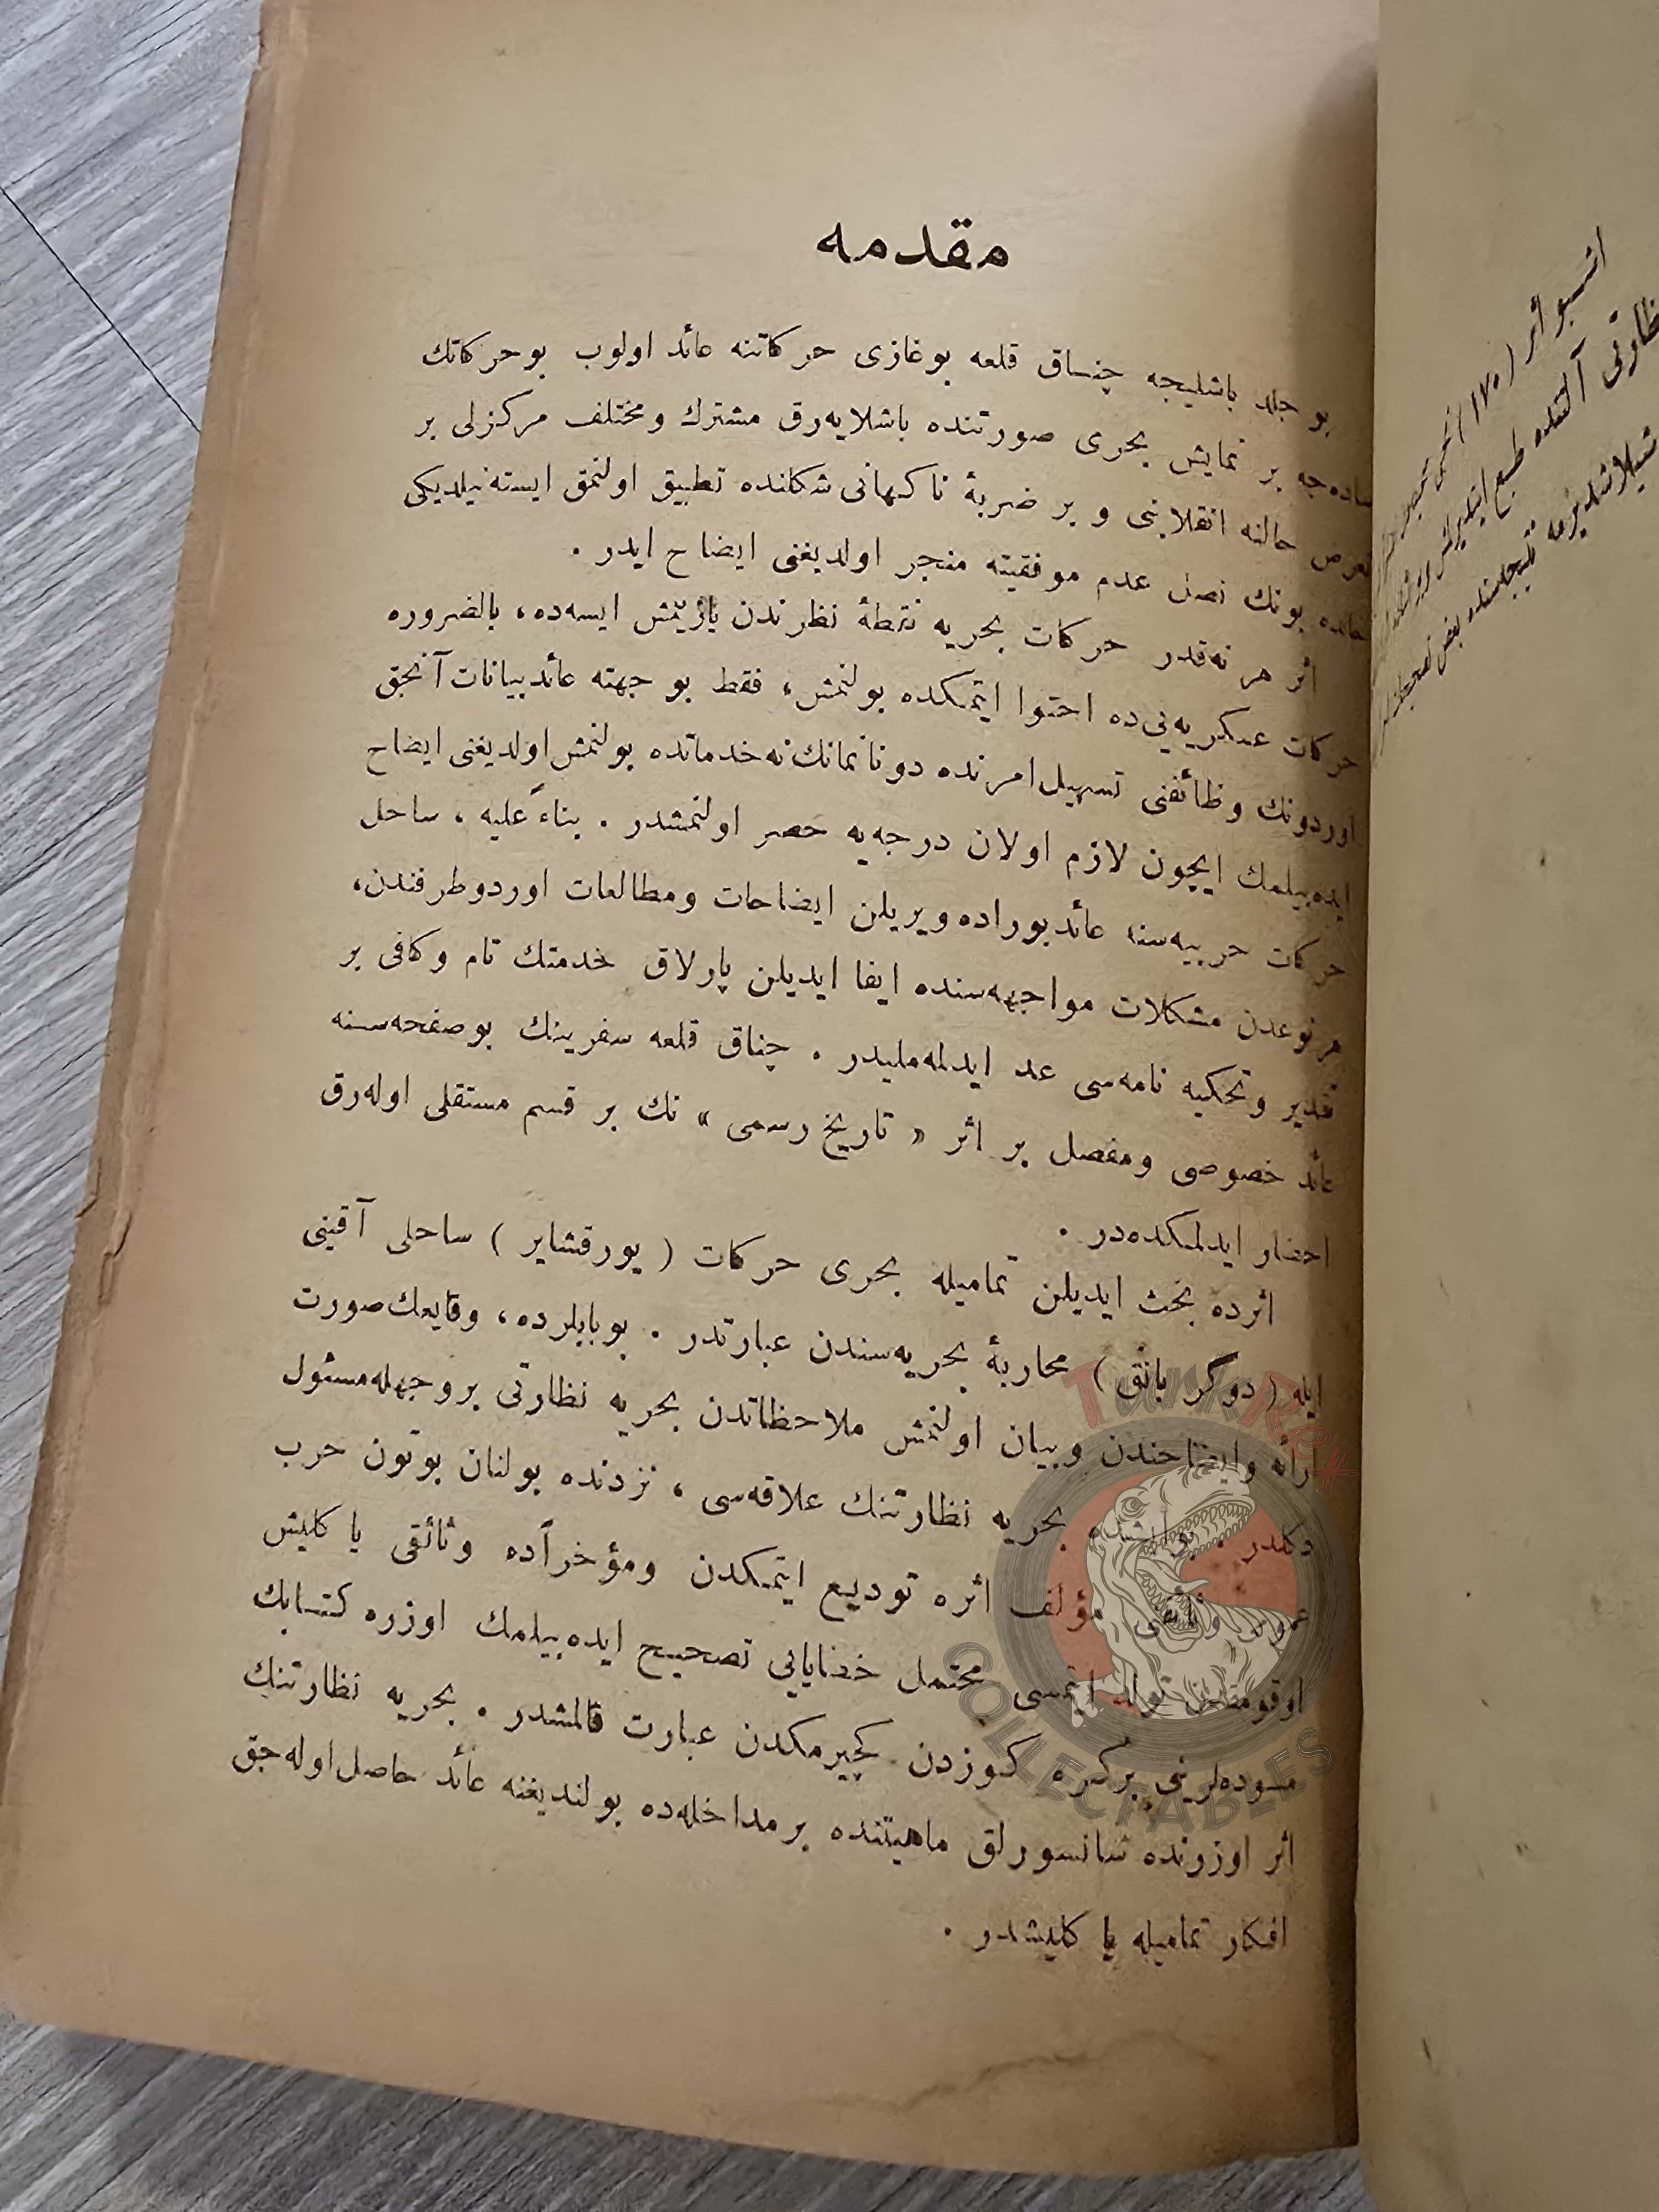 مقدمه
بو جلد باشليجه چناق قلعه بوغازى حركاتنه عائد اولوب بوحركاتك
ساده‌جه بر نمايش بحرى صورتنده باشلايه‌رق مشترك ومختلف مركزلى بر
تعرض حالنه انقلابنى و بر ضربهٔ ناكهانى شكلنده تطبيق اولنمق ايسته‌نيلديكى
حالده بونك نصل عدم موفقيته منجر اولديغنى ايضاح ايدر .
اثر هر نه‌قدر حركات بحريه نقطهٔ نظرندن يازيلمش ايسه‌ده، بالضروره
حركات عسكريه‌يى‌ده احتوا ايتمكده بولنمش، فقط بو جهته عائد بيانات آنجق
اوردونك وظائفنى تسهيل امرنده دونانمانك نه خدماتده بولنمش اولديغنى ايضاح
ايده‌بيلمك ايچون لازم اولان درجه‌يه حصر اولنمشدر . بناءً عليه ، ساحل
حركات حربيه‌سنه عائد بوراده ويريلن ايضاحات ومطالعات اوردو طرفندن،
هر نوعدن مشكلات مواجهه‌سنده ايفا ايديلن پارلاق خدمتك تام وكافى بر
تقدير وتحكيه نامه‌سى عد ايدلمه‌مليدر . چناق قلعه سفرينك بوصفحه‌سنه
عائد خصوصى ومفصل بر اثر « تاريخ رسمى » نك بر قسم مستقلى اوله‌رق
احضار ايدلمكده‌در .
اثرده بحث ايديلن تماميله بحرى حركات ( يورقشاير ) ساحلى آقينى
ايله ( دوگر بانق ) محاربهٔ بحريه‌سندن عبارتدر . بوبابلرده، وقايعك صورت
ارائه وايضاحندن وبيان اولنمش ملاحظاتدن بحريه نظارتى بروجهله مسئول
دكلدر . بحريه نظارتنك علاقه‌سى ، نزدنده بولنان بوتون حرب
وثائقى مؤلف اثره توديع ايتمكدن ومؤخراًده وثائقى ياكليش
اوقومقدن تولد ايتمسى محتمل خطايايى تصحيح ايده‌بيلمك اوزره كتابك
مسوده‌لرينى بركره كوزدن كچيرمكدن عبارت قالمشدر . بحريه نظارتنك
اثر اوزرنده سانسورلق ماهيتنده برمداخله‌ده بولنديغنه عائد حاصل اوله‌جق
افكار تماميله ياكليشدر .
اشبو اثر (١٧٠)
نظارتى آلتنده طبع ايتديرلمش
نتيجه‌سنده بعض تصحيحات
TankRex
COLLECTABLES